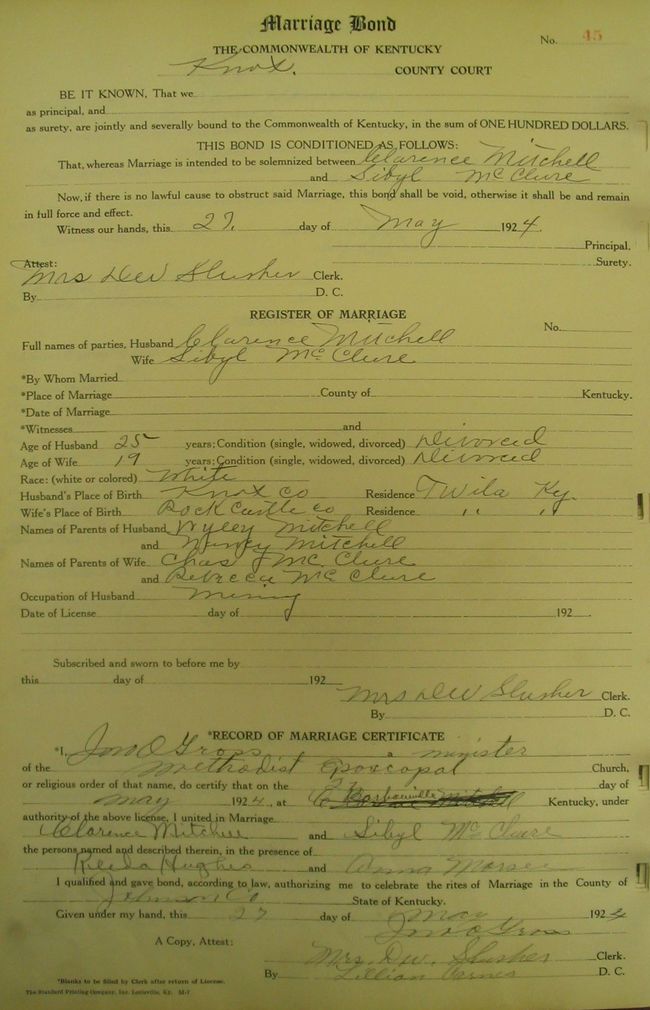 Marriage Bond
No. 45
THE COMMONWEALTH OF KENTUCKY
Knox. COUNTY COURT
BE IT KNOWN, That we
as principal, and
as surety, are jointly and severally bound to the Commonwealth of Kentucky, in the sum of ONE HUNDRED DOLLARS.
THIS BOND IS CONDITIONED AS FOLLOWS:
That, whereas Marriage is intended to be solemnized between Clarence Mitchell
and Sibyl McClure
Now, if there is no lawful cause to obstruct said Marriage, this bond shall be void, otherwise it shall be and remain
in full force and effect.
Witness our hands, this 27. day of May 1924.
Principal.
Attest: Surety.
Mrs DW Slusher Clerk.
By D. C.
REGISTER OF MARRIAGE
No.
Full names of parties, Husband Clarence Mitchell
Wife Sibyl McClure
*By Whom Married
*Place of Marriage County of Kentucky.
*Date of Marriage
*Witnesses and
Age of Husband 25 years; Condition (single, widowed, divorced) Divorced
Age of Wife 19 years; Condition (single, widowed, divorced) Divorced
Race: (white or colored) White
Husband's Place of Birth Knox Co Residence Twila Ky.
Wife's Place of Birth Rock Castle Co Residence " "
Names of Parents of Husband Wyley Mitchell
and Nancy Mitchell
Names of Parents of Wife Chas McClure
and Rebecca McClure
Occupation of Husband Mining
Date of License day of 192
Subscribed and sworn to before me by
this day of 192
Mrs DW Slusher Clerk.
By D. C.
*RECORD OF MARRIAGE CERTIFICATE
*I, Jno O Gross a minister
of the Methodist Episcopal Church,
or religious order of that name, do certify that on the day of
May 1924, at Barbourville Kentucky, under
authority of the above license, I united in Marriage
Clarence Mitchell and Sibyl McClure
the persons named and described therein, in the presence of
Hughes and Anna
I qualified and gave bond, according to law, authorizing me to celebrate the rites of Marriage in the County of
Johnson Co State of Kentucky.
Given under my hand, this 27 day of May 1924
Jno O Gross
A Copy, Attest:
Mrs. DW. Slusher Clerk.
By Lillian D. C.
*Blanks to be filled by Clerk after return of License.
The Standard Printing Company, Inc. Louisville, Ky.